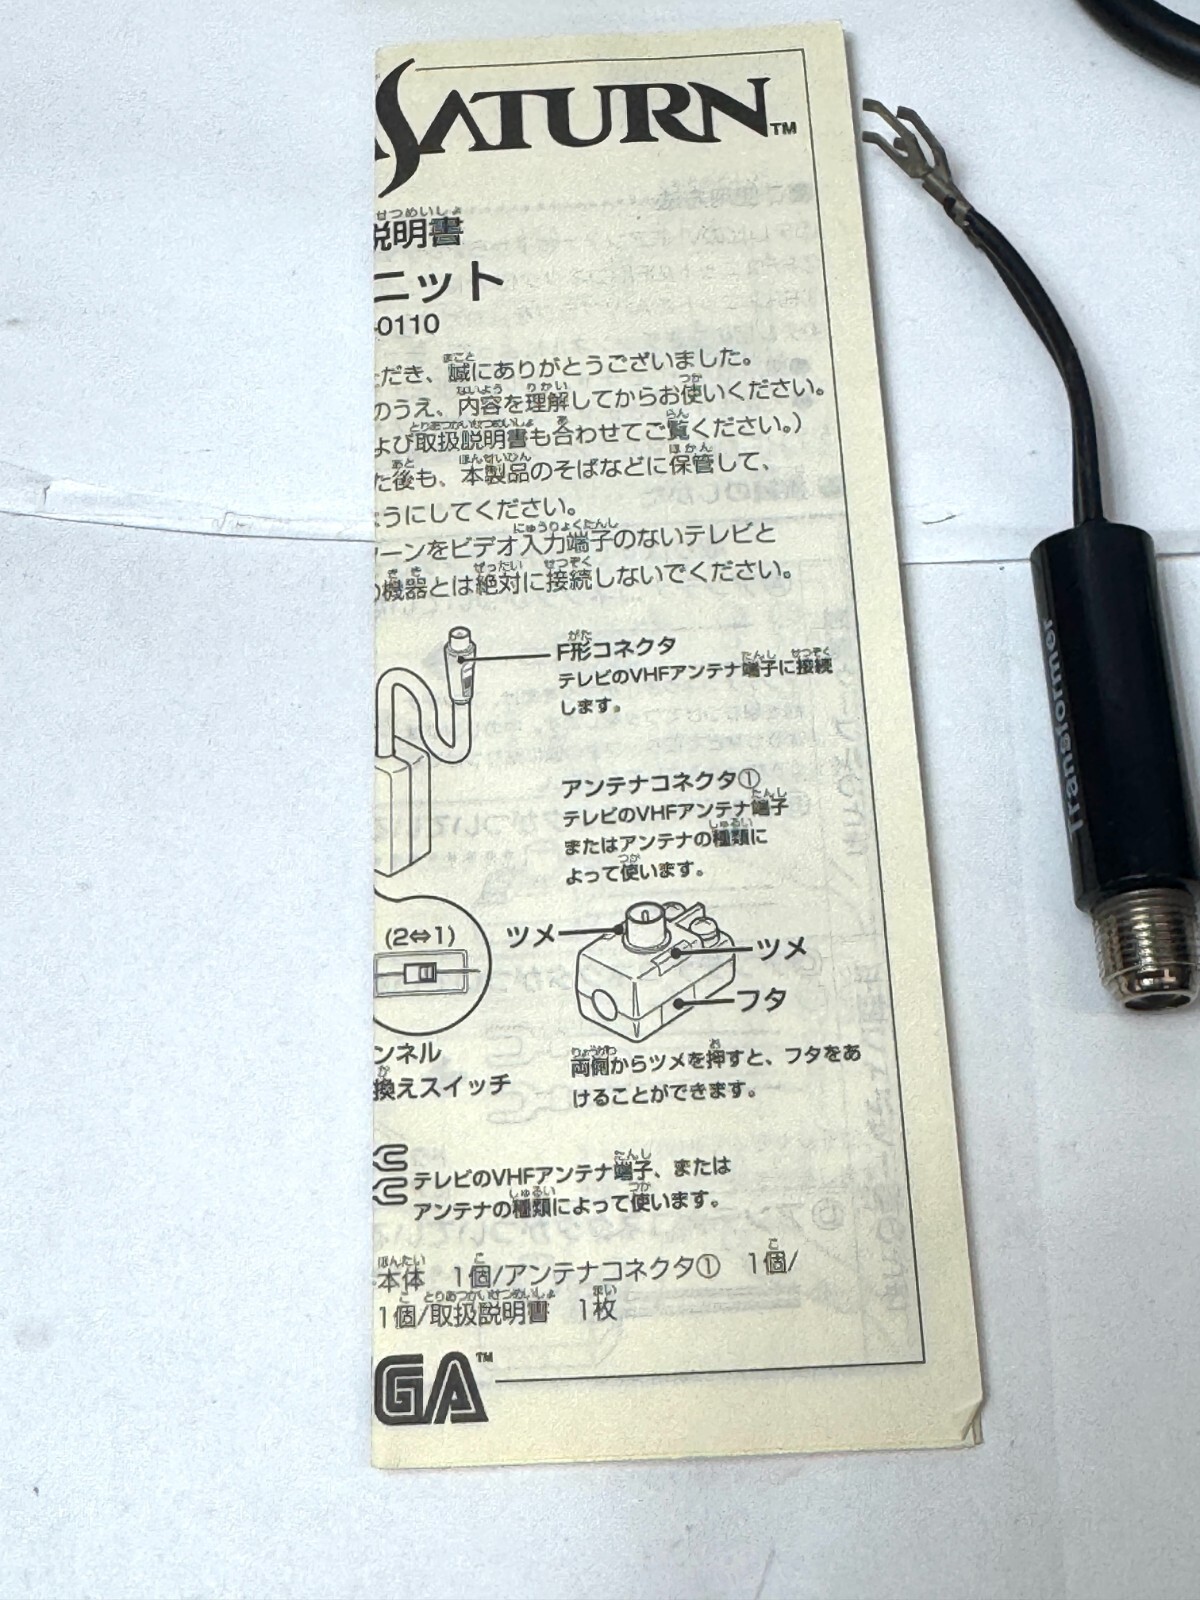 SATURN™
説明書
ニット
-0110
ただき、誠にありがとうございました。
のうえ、内容を理解してからお使いください。
よび取扱説明書も合わせてご覧ください。)
た後も、本製品のそばなどに保管して、
ようにしてください。
ターンをビデオ入力端子のないテレビと
の機器とは絶対に接続しないでください。
F形コネクタ
テレビのVHFアンテナ端子に接続
します。
アンテナコネクタ①
テレビのVHFアンテナ端子
またはアンテナの種類に
よって使います。
(2⇔1)
ツメ
ツメ
フタ
ンネル
換えスイッチ
両側からツメを押すと、フタをあ
けることができます。
テレビのVHFアンテナ端子、または
アンテナの種類によって使います。
本体 1個/アンテナコネクタ① 1個/
1個/取扱説明書 1枚
GA™
Transformer